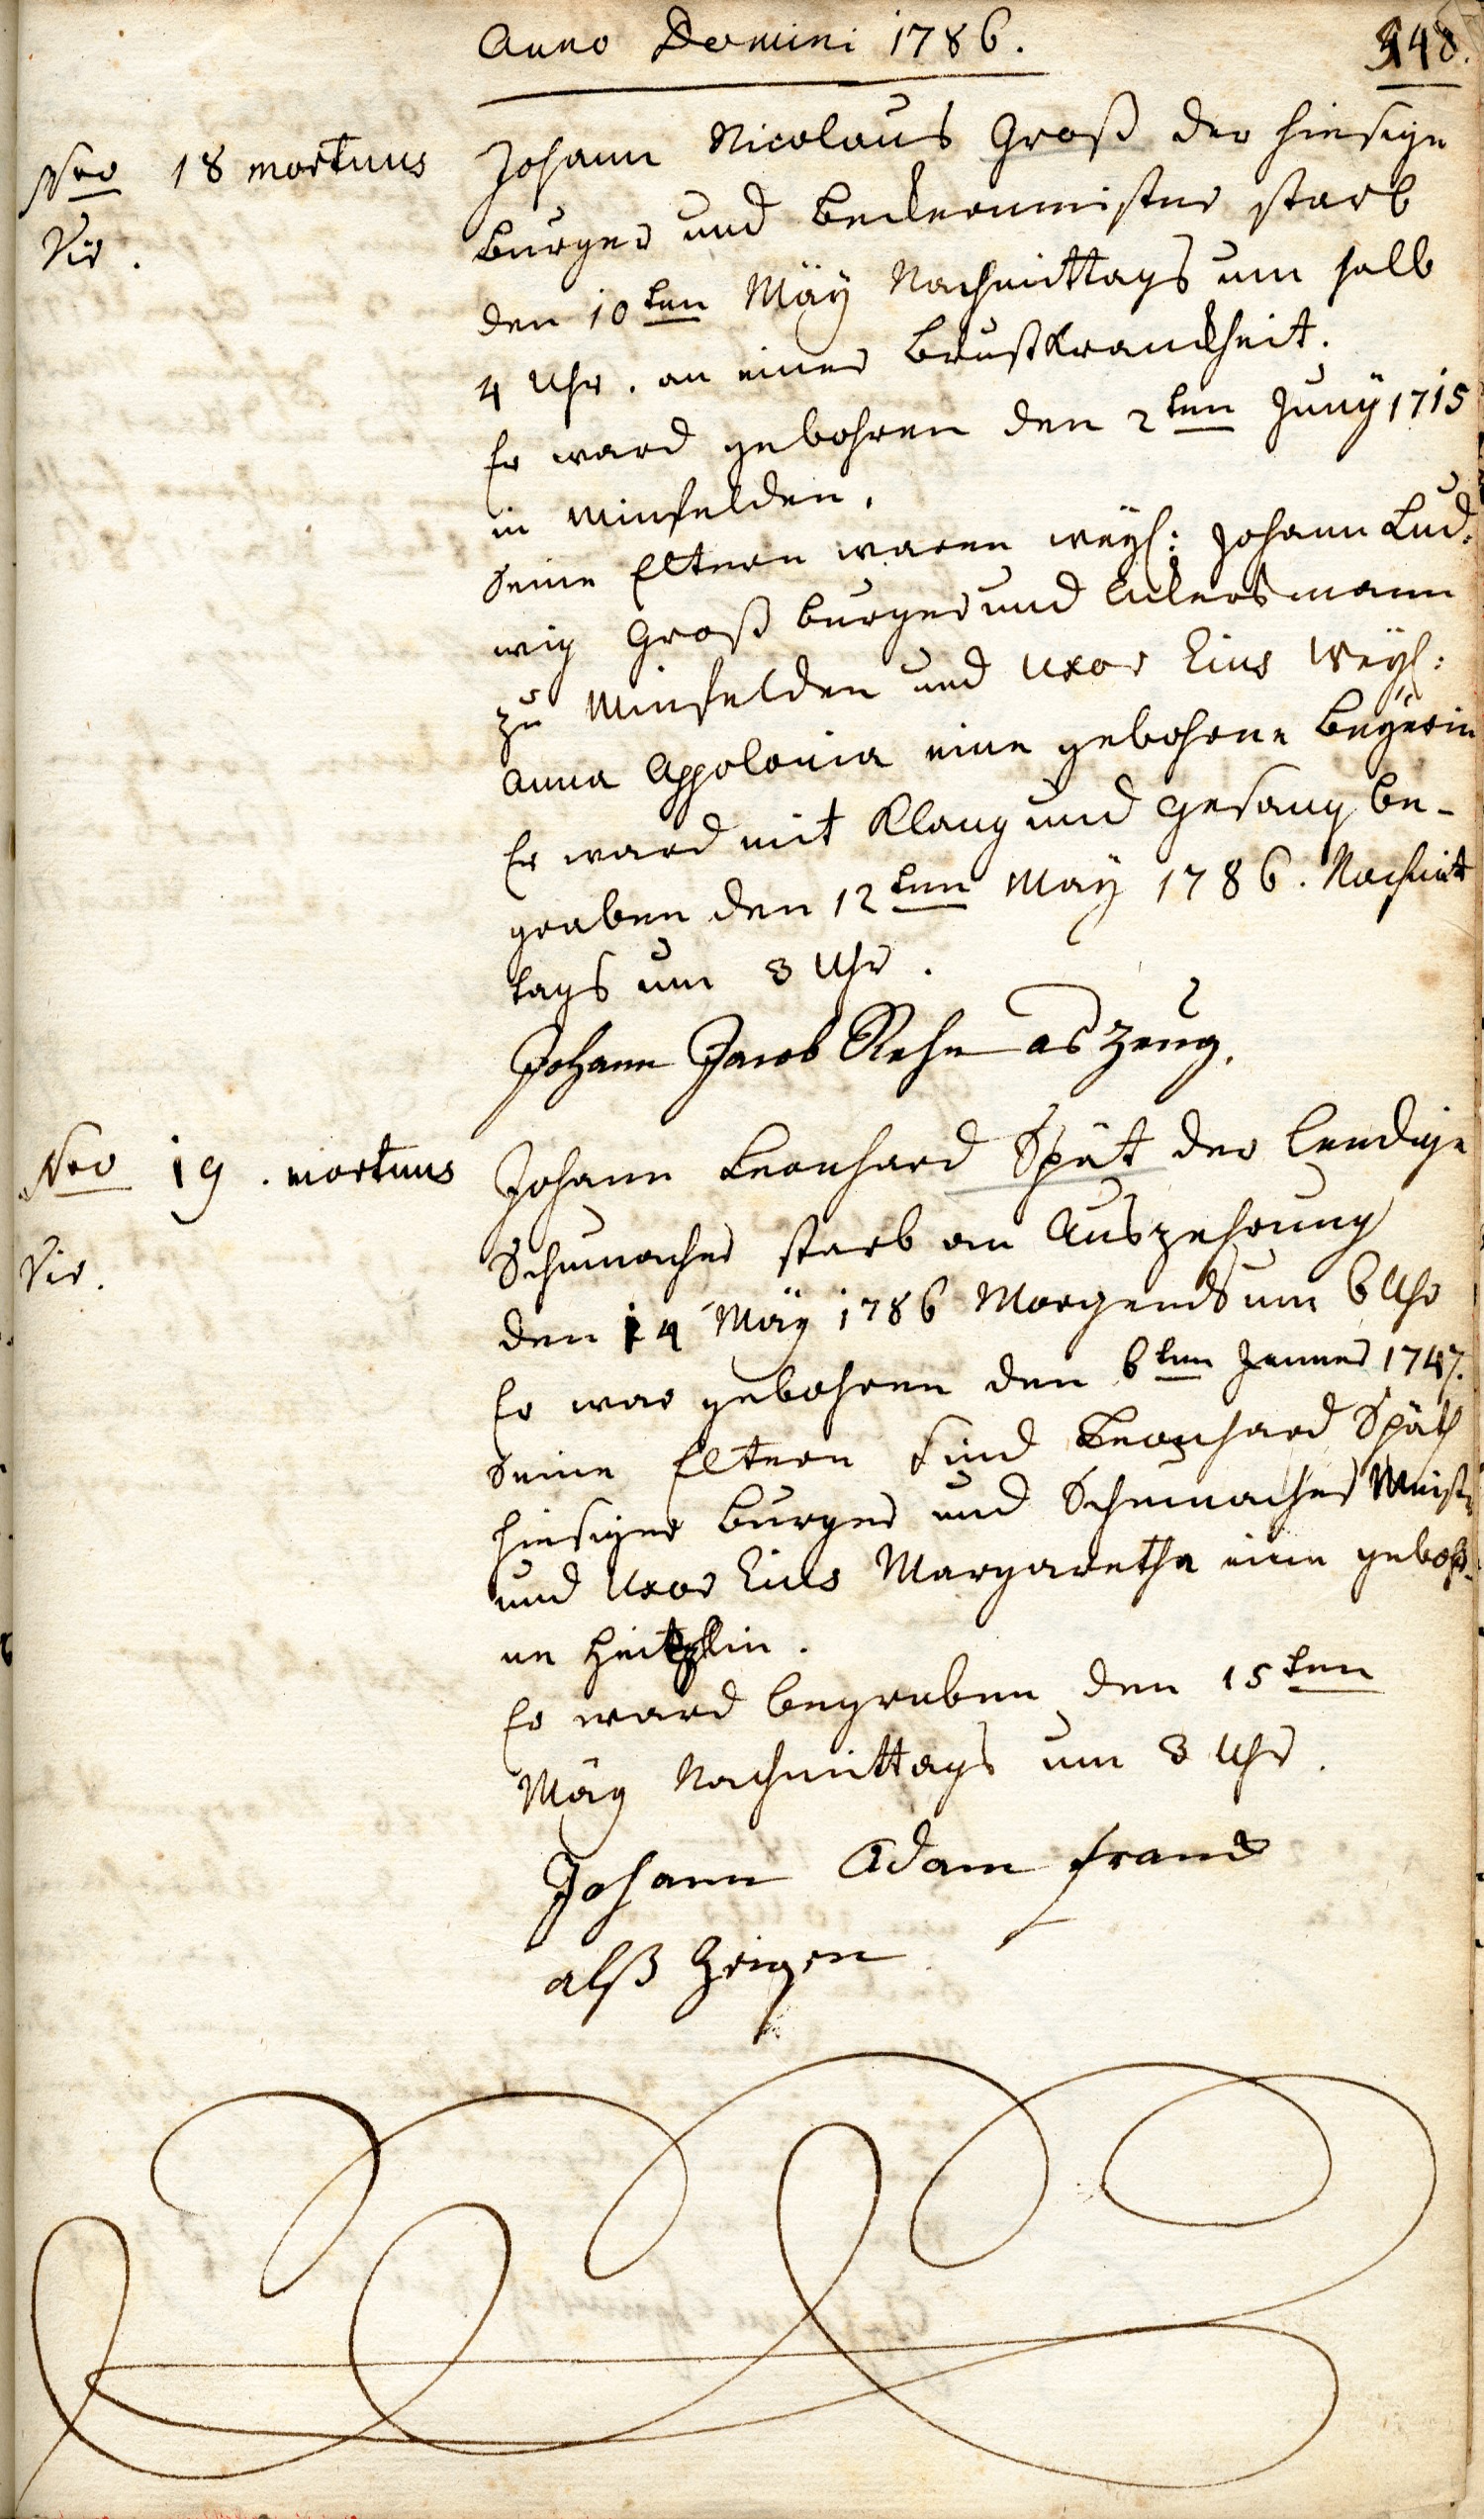 Anno Domini 1786.
348.
Nro 18 mortuus
Vir.
Johann Nicolaus Groß der hiesige
burger und beckermeister starb
den 10ten Mäÿ Nachmittags um halb
4 Uhr. an einer brustkranckheit.
Er ward gebohren den 2ten Junÿ 1715
in Minfelden.
Seine Eltern waren weÿl: Johann Lud-
wig Groß burger und Ackersmann
zu Minfelden und Uxor Eius Weÿl:
Anna Appolonia eine gebohrne Beÿerin
Er ward mit Klang und gesang be-
graben den 12ten Maÿ 1786. Nachmit
tags um 3 Uhr.
Johann Jacob Rehn as Zeug.
Nro 19. mortuus
Vir.
Johann Leonhard Spät der leedige
Schumacher starb an Auszehrung
den 14 Mäy 1786 Morgends um 6 Uhr
Er war gebohren den 6ten Jenner 1747.
Seine Eltern sind Leonhard Späth
hiesiger burger und Schumacher Meister
und Uxor Eius Margaretha eine gebohr-
ne
Er ward begraben den 15ten
Mäy Nachmittags um 3 Uhr.
Johann Adam franck
alß Zeigen